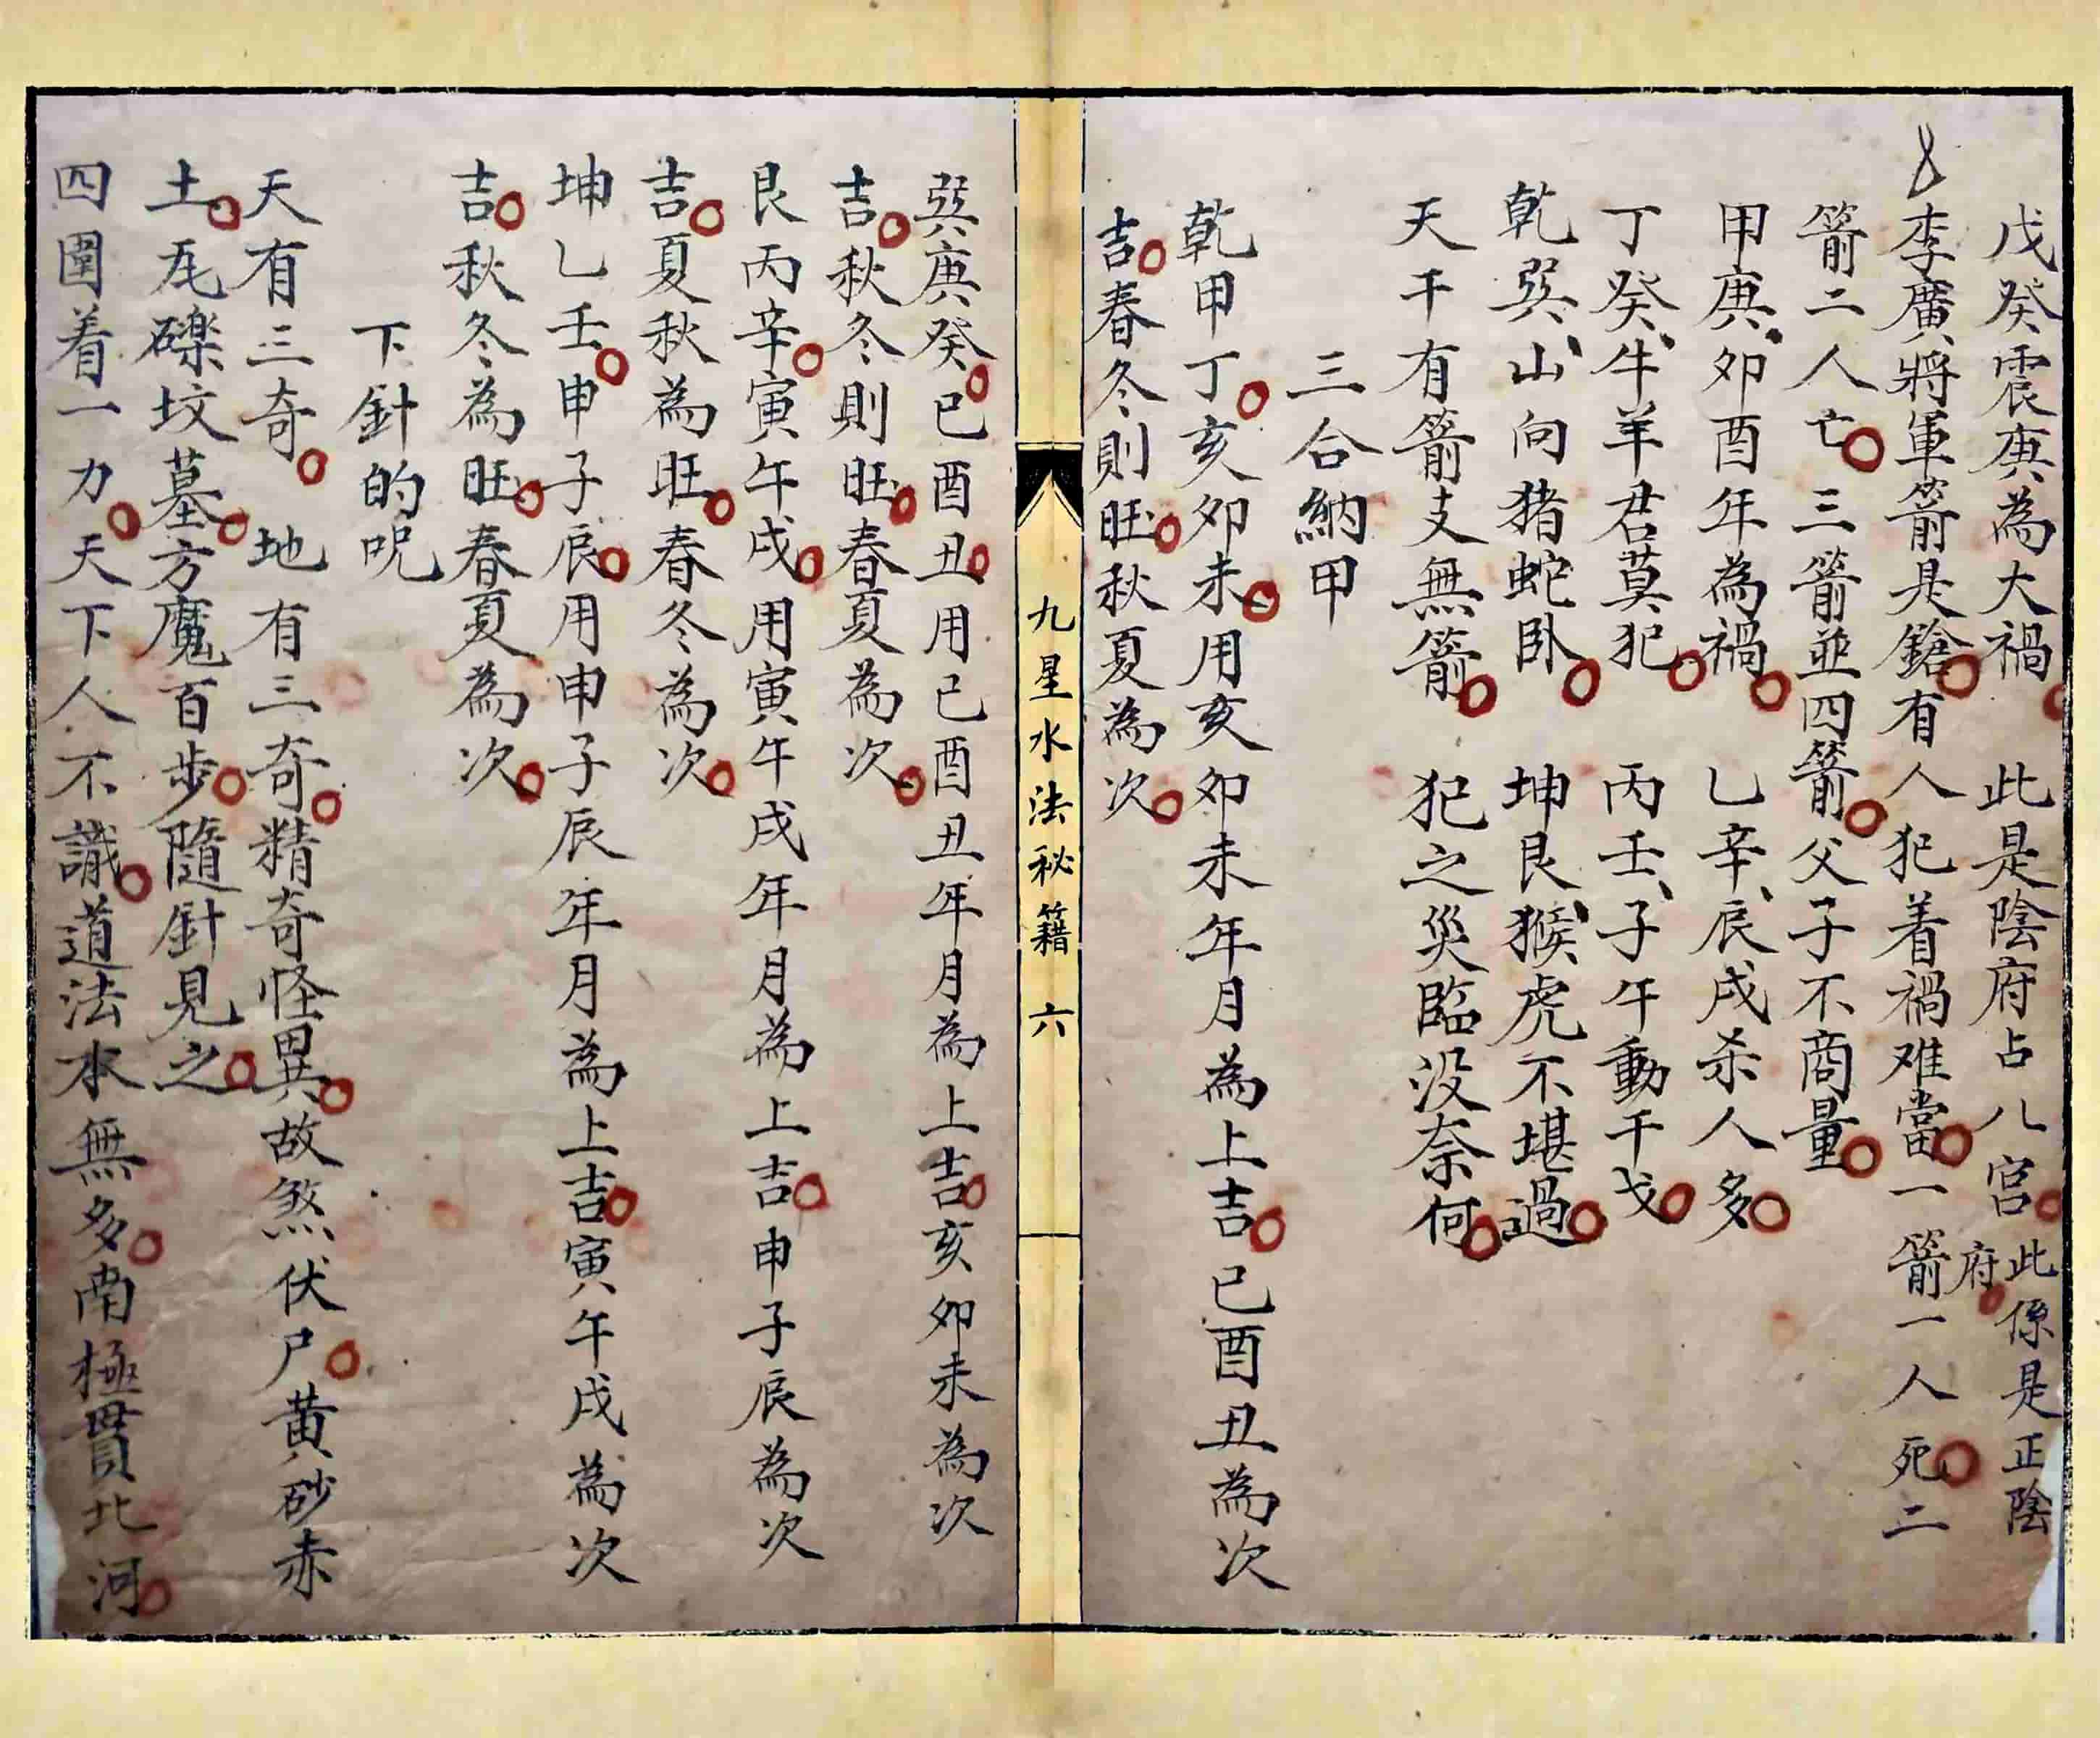 戊癸震庚為大禍　此是陰府占八宮此係是正陰
府
李廣將軍箭是鎗有人犯着禍难當一箭一人死二
箭二人亡三箭並四箭父子不商量
甲庚卯酉年為禍　乙辛辰戌杀人多
丁癸牛羊君莫犯　丙壬子午動干戈
乾巽山向猪蛇卧　坤艮猴虎不堪過
天干有箭支無箭　犯之災臨没奈何
三合納甲
乾甲丁亥卯未用亥卯未年月為上吉已酉丑為次
吉春冬則旺秋夏為次
九星水法秘籍　六
巽庚癸巳酉丑用已酉丑年月為上吉亥卯未為次
吉秋冬則旺春夏為次
艮丙辛寅午戌用寅午戌年月為上吉申子辰為次
吉夏秋為旺春冬為次
坤乙壬申子辰用申子辰年月為上吉寅午戌為次
吉秋冬為旺春夏為次
下針的呪
天有三奇　地有三奇精奇怪異故煞伏尸黄砂赤
土瓦礫坟墓方魔百步隨針見之
四圍着一力天下人不識道法水無多南極貫北河